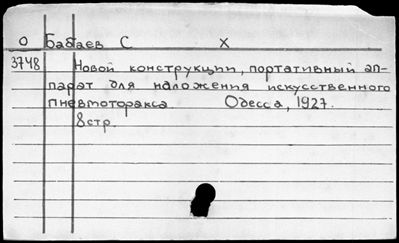 О Бабаев С Х
3748 Новой конструкции, портативный ап-
парат для наложения искусственного
пневмоторакса. Одесса, 1927.
8стр.